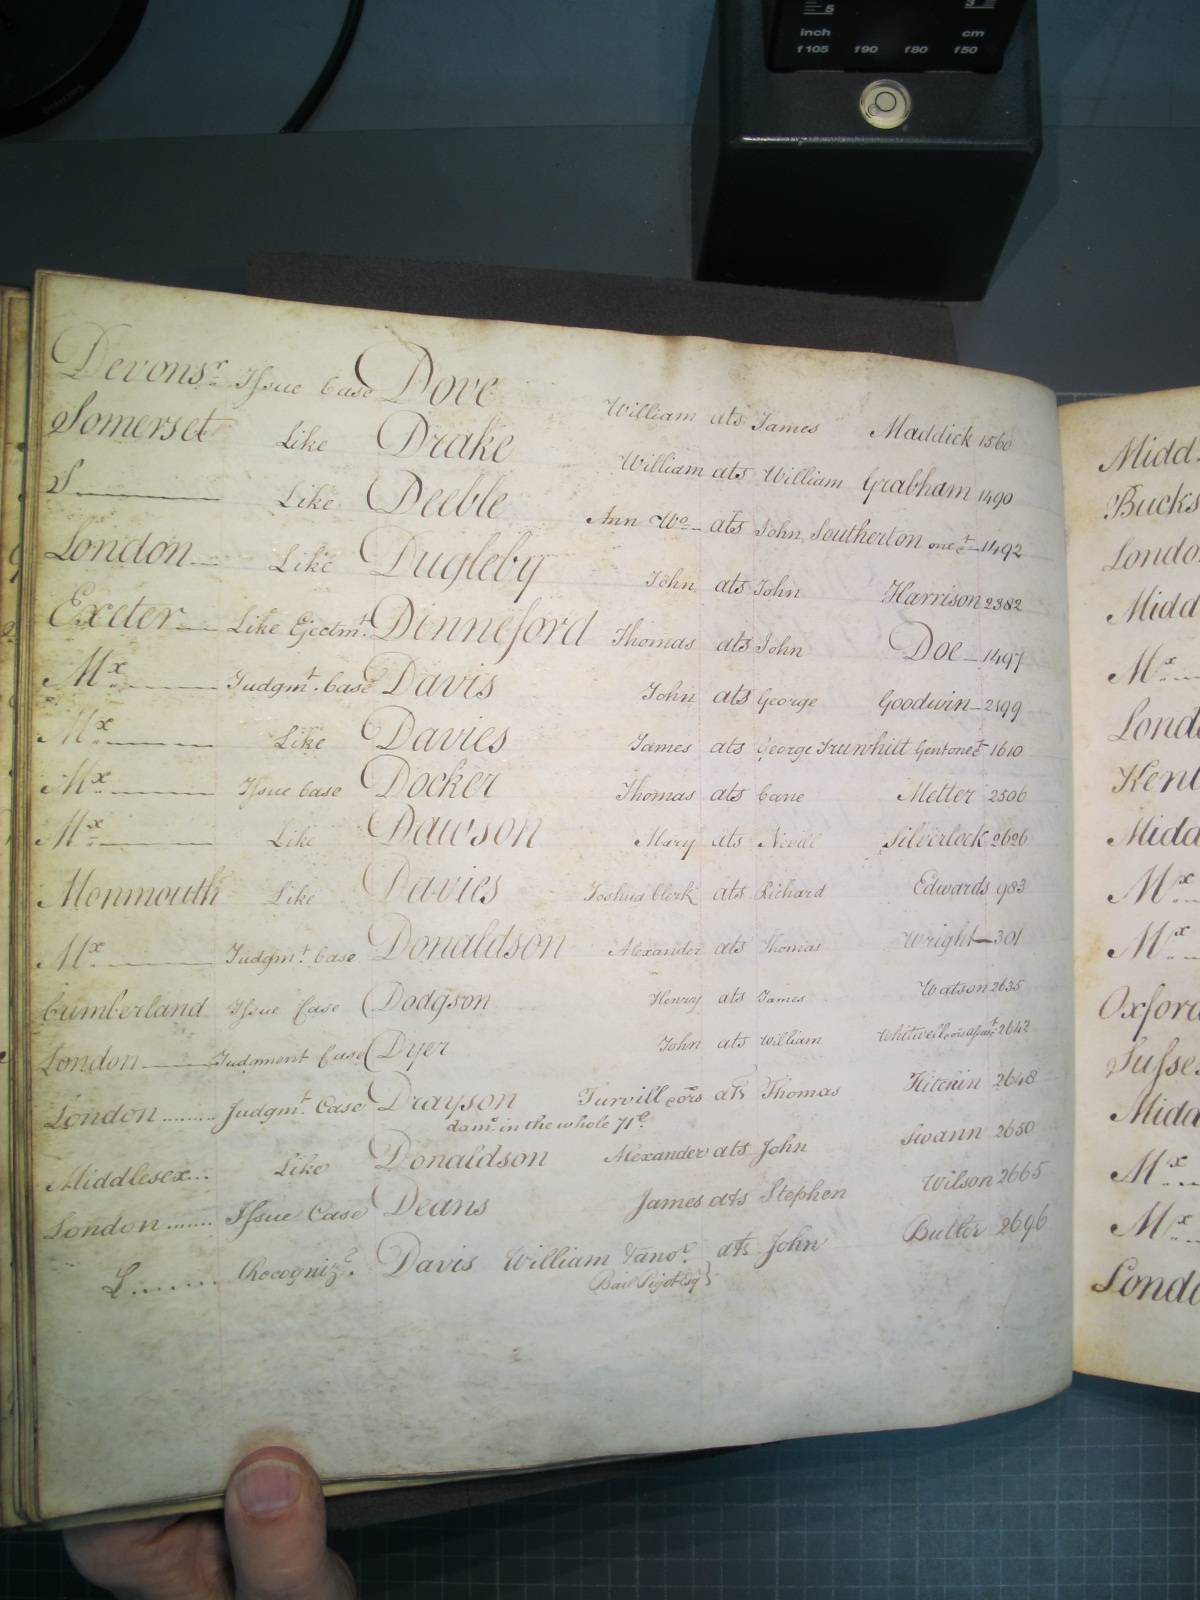 inch cm
f105 f90 f80 f50
Devonsr Issue Case Dove William ats James Maddick 1560
Somerset Like Drake William ats William Grabham 1490
S Like Deeble Ann Wo ats John Southerton one &ct 1492
London Like Dugleby John ats John Harrison 2382
Exeter Like Ejectmt Dinneford Thomas ats John Doe 1497
Mx Judgmt. Case Davis John ats George Goodwin 2499
Mx Like Davies James ats George Trunwhitt Gent one &ct 1610
Mx Issue Case Docker Thomas ats Cane Metter 2506
Mx Like Dawson Mary ats Nevill Silverlock 2626
Monmouth Like Davies Joshua Clerk ats Richard Edwards 983
Mx Judgmt. Case Donaldson Alexander ats Thomas Wright 301
Cumberland Issue Case Dodgson Henry ats James Watson 2635
London Judgment Case Dyer John ats William Whitwell 2642
London Judgmt. Case Drayson Turvill &ors ats Thomas Kitchin 2648
dams. in the whole 71£
Middlesex Like Donaldson Alexander ats John Swann 2650
London Issue Case Deans James ats Stephen Wilson 2665
L Recognize. Davis William &anor ats John Butler 2696
Bail Pigot Esq
Midd
Bucks
London
Midd
Mx
Lond
Kent
Midd
Mx
Mx
Oxford
Susse
Midd
Mx
Mx
Londo